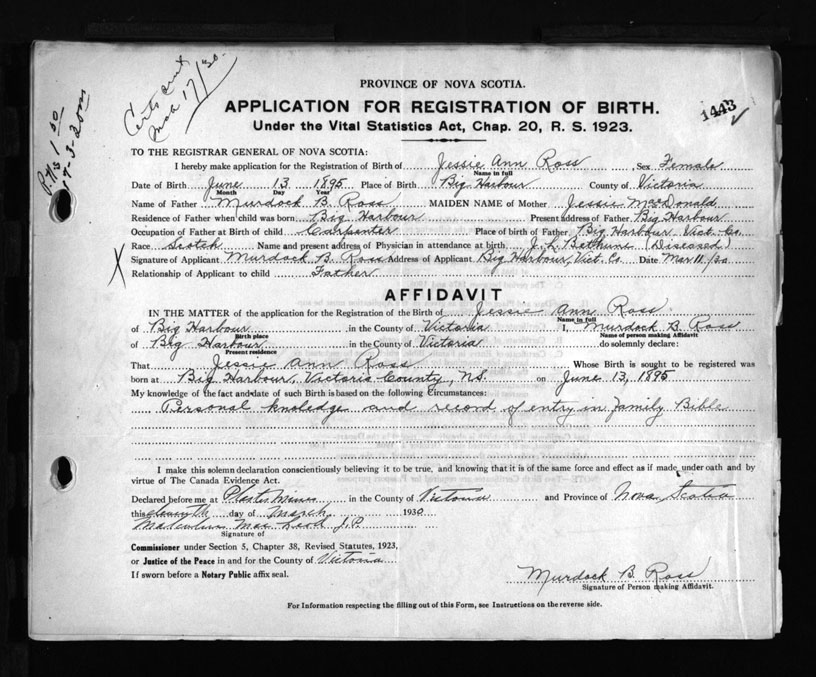 Certs sent
Mar 17/30.
17-3-30
PROVINCE OF NOVA SCOTIA.
APPLICATION FOR REGISTRATION OF BIRTH.
1443
Under the Vital Statistics Act, Chap. 20, R. S. 1923.
TO THE REGISTRAR GENERAL OF NOVA SCOTIA:
I hereby make application for the Registration of Birth of Jessie Ann Ross, Sex Female
Name in full
Date of Birth June 13 1895 Place of Birth Big Harbour County of Victoria
Month Day Year
Name of Father Murdock B. Ross, MAIDEN NAME of Mother Jessie MacDonald
Residence of Father when child was born Big Harbour Present address of Father Big Harbour
Occupation of Father at Birth of child Carpenter Place of birth of Father Big Harbour Vict. Co.
Race Scotch Name and present address of Physician in attendance at birth J. L. Bethune (Diseased)
Signature of Applicant Murdock B. Ross Address of Applicant Big Harbour, Vict. Co. Date Mar 11/30
X Relationship of Applicant to child Father
AFFIDAVIT
IN THE MATTER of the application for the Registration of the Birth of Jessie Ann Ross
Name in full
of Big Harbour in the County of Victoria I, Murdock B Ross
Birth place Name of person making Affidavit
of Big Harbour in the County of Victoria do solemnly declare:
Present residence
That Jessie Ann Ross Whose Birth is sought to be registered was
born at Big Harbour, Victoria County, N.S. on June 13, 1895
My knowledge of the fact and date of such Birth is based on the following Circumstances:
Personal knoledge and record of entry in family Bible
I make this solemn declaration conscientiously believing it to be true, and knowing that it is of the same force and effect as if made under oath and by
virtue of The Canada Evidence Act.
Declared before me at Plaster Mines in the County of Victoria and Province of Nova Scotia
this eleventh day of March 1930
Malcolm MacLeod J.P.
Signature of
Commissioner under Section 5, Chapter 38, Revised Statutes, 1923,
or Justice of the Peace in and for the County of Victoria
If sworn before a Notary Public affix seal.
Murdock B. Ross
Signature of Person making Affidavit.
For Information respecting the filling out of this Form, see Instructions on the reverse side.